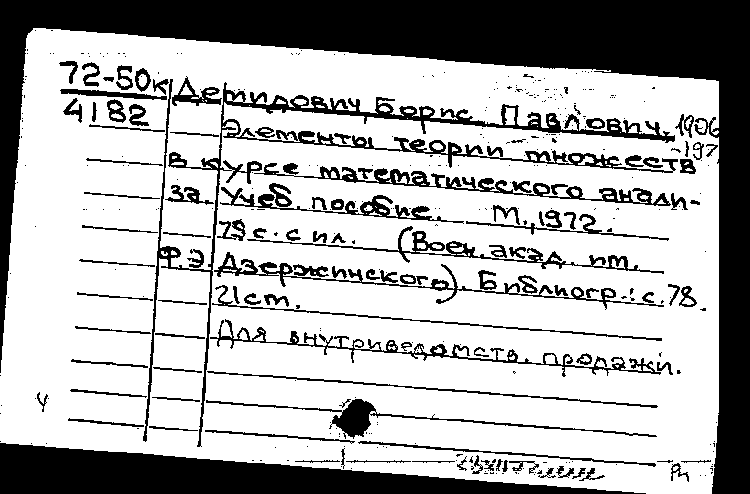 72-50к Демидович, Борис Павлович, 1906
4182 -197
Элементы теории множеств
в курсе математического анали-
за. Учеб. пособие. М., 1972.
79 с. с ил. (Воен. акад. им.
Ф.Э. Дзержинского). Библиогр.: с. 78.
21 cm.
Для внутриведомств. продажи.